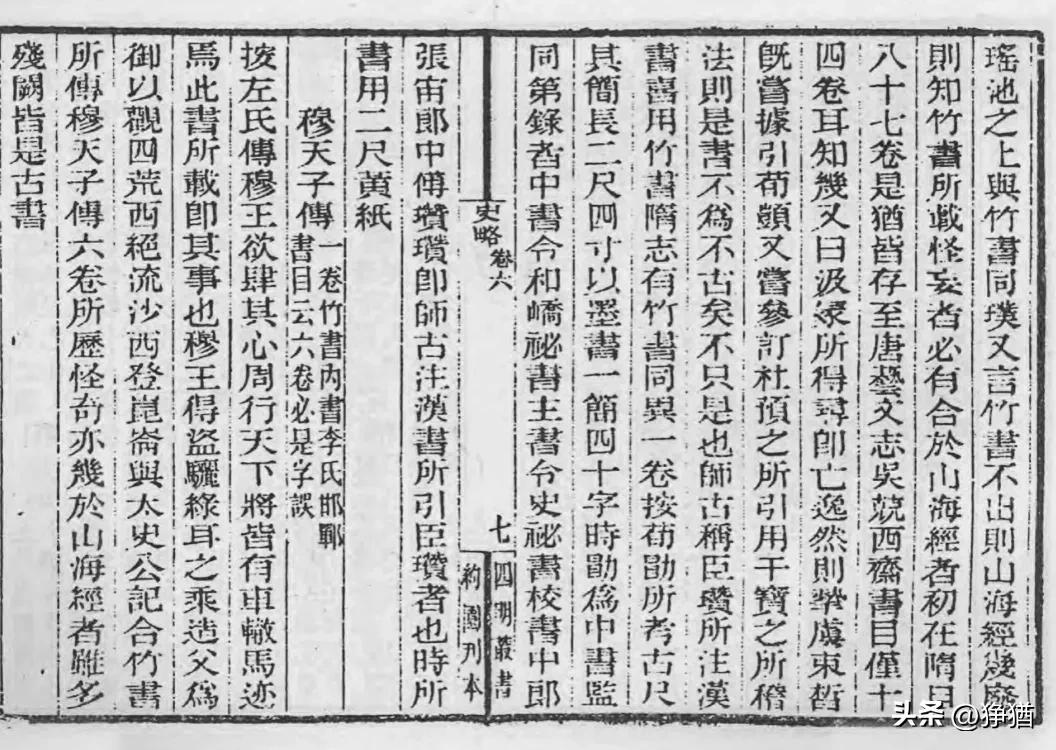 瑤池之上與竹書同璞又言竹書不出則山海經幾廢
則知竹書所載怪妄者必有合於山海經者初在隋曰
八十七卷是猶皆存至唐藝文志吳兢西齋書目僅十
四卷耳知幾又曰汲冢所得尋即亡逸然則摯虞束晳
既嘗據引荀顗又嘗參訂杜預之所引用干寶之所稽
法則是書不為不古矣不只是也師古稱臣瓚所注漢
書喜用竹書隋志有竹書同異一卷按荀勖所考古尺
其簡長二尺四寸以墨書一簡四十字時勖為中書監
同第錄者中書令和嶠祕書主書令史祕書校書中郎
史略 卷六
七
四明叢書
約園刊本
張宙郎中傅瓚瓚即師古注漢書所引臣瓚者也時所
書用二尺黃紙
穆天子傳一卷竹書內書李氏邯鄲
書目云六卷必是字誤
按左氏傳穆王欲肆其心周行天下將皆有車轍馬迹
焉此書所載即其事也穆王得盜驪綠耳之乘造父為
御以觀四荒西絕流沙西登崑崙與太史公記合竹書
所傳穆天子傳六卷所歷怪奇亦幾於山海經者雖多
殘闕皆是古書
头条 @狰猶